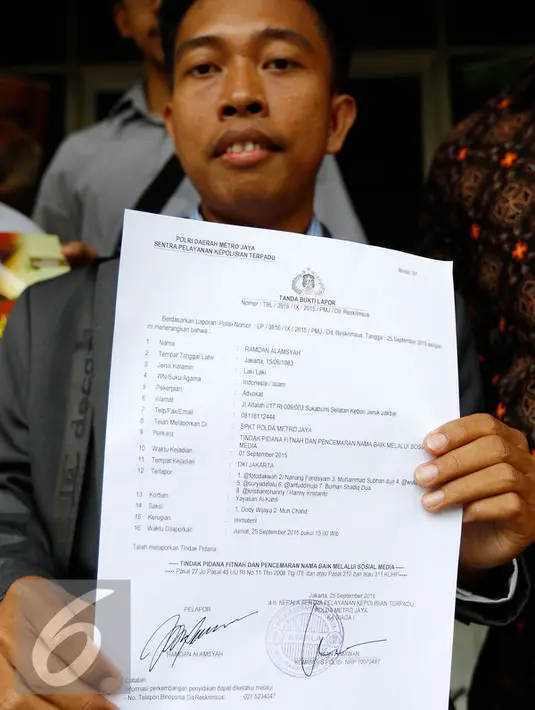 POLRI DAERAH METRO JAYA
SENTRA PELAYANAN KEPOLISIAN TERPADU
Model B1
TANDA BUKTI LAPOR
Nomor : TBL / 3916 / IX / 2015 / PMJ / Dit. Reskrimsus
Berdasarkan Laporan Polisi Nomor : LP / 3916 / IX / 2015 / PMJ / Dit. Reskrimsus, Tanggal : 25 September 2015 dengan
ini menerangkan bahwa :
1 Nama : RAMDAN ALAMSYAH
2 Tempat Tanggal Lahir : Jakarta, 15/06/1983
3 Jenis Kelamin : Laki Laki
4 WN/Suku/Agama : Indonesia / Islam
5 Pekerjaan : Advokat
6 Alamat : Jl.Alfalah I/17 Rt 006/003 Sukabumi Selatan Kebon Jeruk Jakbar
7 Telp/Fax/Email : 08118112444
8 Telah Melaporkan Di : SPKT POLDA METRO JAYA
9 Perkara : TINDAK PIDANA FITNAH DAN PENCEMARAN NAMA BAIK MELALUI SOSIAL
MEDIA
10 Waktu Kejadian : 01 September 2015
11 Tempat Kejadian : DKI JAKARTA
12 Terlapor : 1. @fotodakwah 2. Nanang Faridsyam 3. Muhammad Subhan duji 4.
5. @suryadelalu 6. @arifuddinujo 7. Buman Shadiq Dua
8 @kristiantohanny / Hanny Kristanto
13 Korban : Yayasan Al-Kahfi
14 Saksi : 1. Doby Wijaya 2. Muh Chafid
15 Kerugian : Immateril
16 Waktu Dilaporkan : Jumat, 25 September 2015 pukul 15.00 Wib
Telah melaporkan Tindak Pidana :
----- TINDAK PIDANA FITNAH DAN PENCEMARAN NAMA BAIK MELALUI SOSIAL MEDIA -----
----- Pasal 27 Jo Pasal 45 UU RI No 11 Thn 2008 Ttg ITE dan atau Pasal 310 dan atau 311 KUHP-----
Jakarta, 25 September 2015
PELAPOR
a.n. KEPALA SENTRA PELAYANAN KEPOLISIAN TERPADU
POLDA METRO JAYA
KA SIAGA I
RAMDAN ALAMSYAH
KOMISARIS POLISI NRP 72070467
Catatan:
Informasi perkembangan penyidikan dapat diketahui melalui
- No. Telepon Binopsnal Dit Reskrimsus : 021-5234047
6